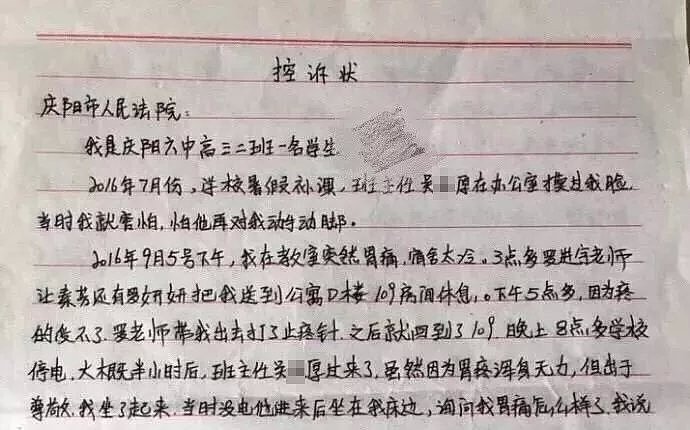 控诉状
庆阳市人民法院:
我是庆阳六中高三二班一名学生
2016年7月份,学校暑假补课,班主任吴 厚在办公室摸过我脸
当时我就害怕,怕他再对我动手动脚。
2016年9月5号下午,我在教室突然胃痛,宿舍太冷。3点多罗进宇老师
让 还有罗妍妍把我送到公寓D楼109房间休息。下午5点多,因为疼
的受不了.罗老师带我出去打了止疼针.之后就回到了109.晚上8点多学校
停电.大概半小时后,班主任吴 厚过来了.虽然因为胃疼浑身无力,但出于
尊敬.我坐了起来.当时没电他进来后坐在我床边,询问我胃痛怎么样了.我说